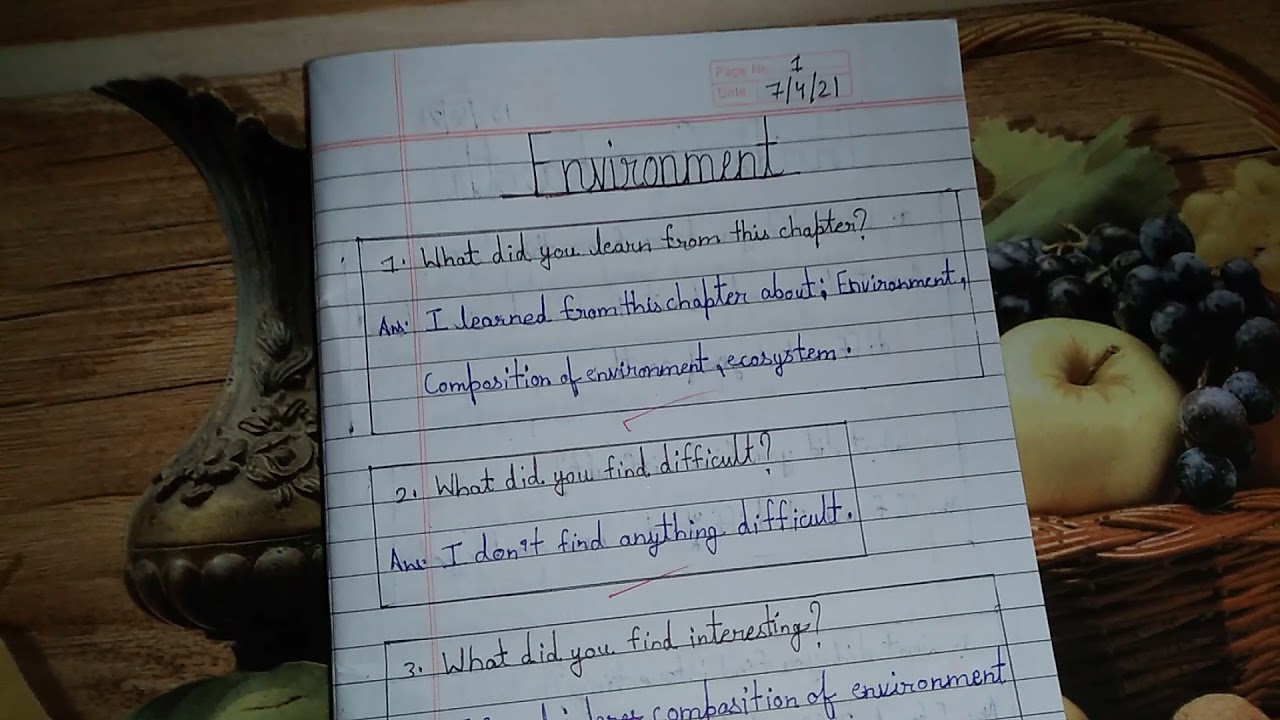 Page No. 1
Date 7/4/21
Environment
1. What did you learn from this chapter?
Ans: I learned from this chapter about; Environment,
Composition of environment, ecosystem.
2. What did you find difficult?
Ans: I don't find anything difficult.
3. What did you find interesting?
composition of environment